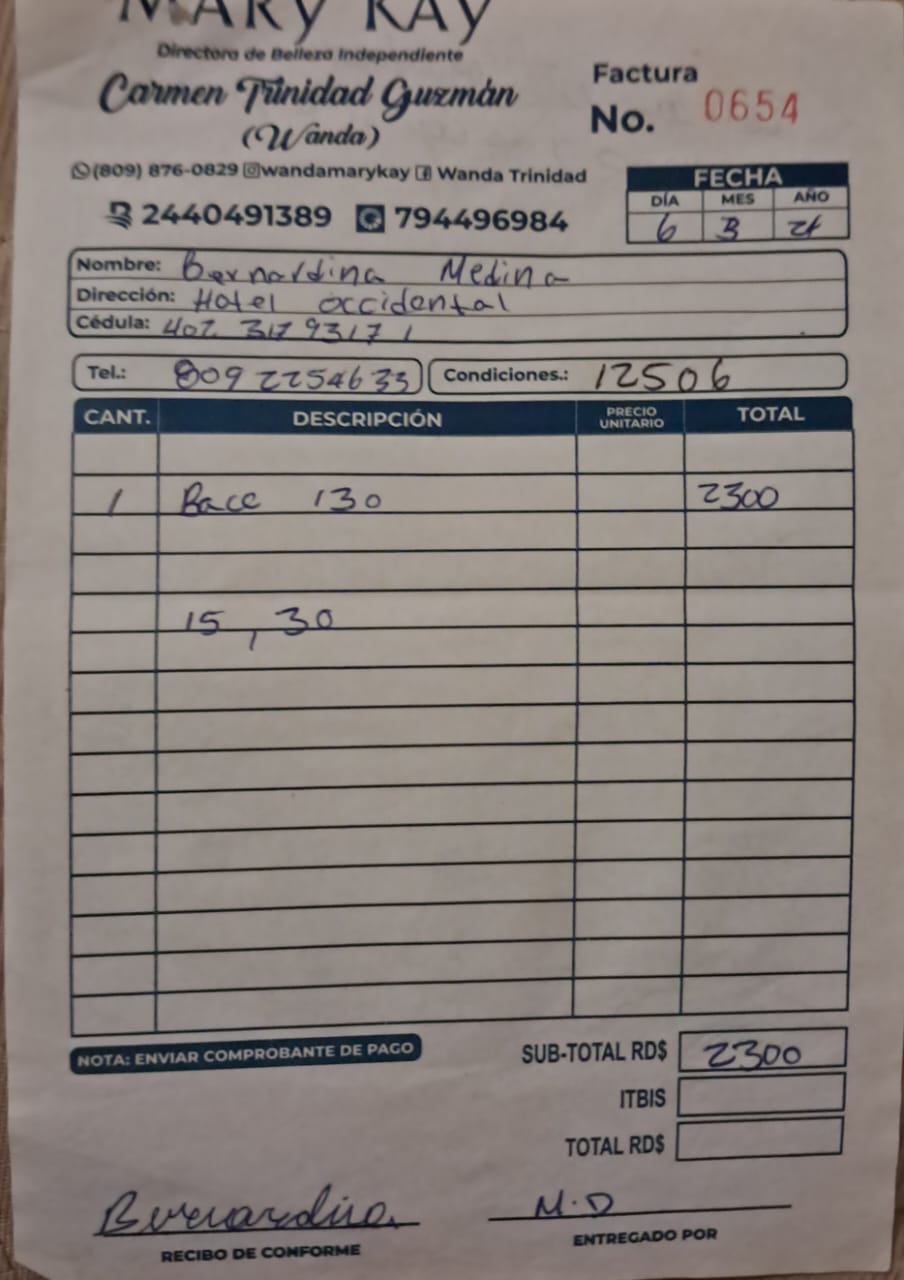 MARY KAY
Directora de Belleza Independiente
Carmen Trinidad Guzmán
(Wanda)
Factura
No. 0654
(809) 876-0829 wandamarykay Wanda Trinidad
2440491389 794496984
FECHA
DÍA MES AÑO
6 3
Nombre: Bernardina Medina
Dirección: Hotel occidental
Cédula: 402 317 9317 1
Tel.: 809 2254633 Condiciones.: 12506
CANT. DESCRIPCIÓN PRECIO UNITARIO TOTAL
1 Bace 130 2300
15, 30
NOTA: ENVIAR COMPROBANTE DE PAGO
SUB-TOTAL RD$ 2300
ITBIS
TOTAL RD$
Bernardina M.D
RECIBO DE CONFORME ENTREGADO POR